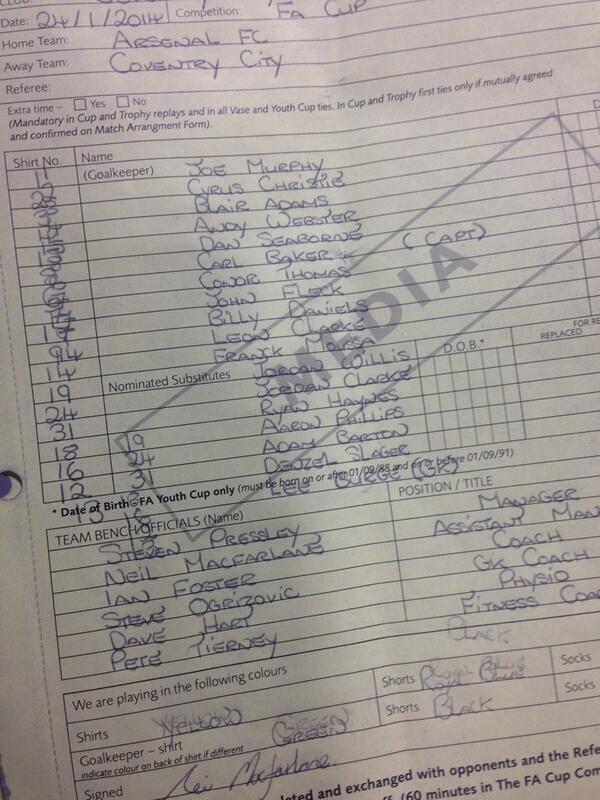 Date: 24/1/2014 Competition: FA CUP
Home Team: ARSENAL FC
Away Team: COVENTRY CITY
Referee:
Extra time – Yes No
(Mandatory in Cup and Trophy replays and in all Vase and Youth Cup ties. In Cup and Trophy first ties only if mutually agreed
and confirmed on Match Arrangment Form).
Shirt No. Name
(Goalkeeper) JOE MURPHY
CYRUS CHRISTIE
BLAIR ADAMS
ANDY WEBSTER
DAN SEABORNE
CARL BAKER (CAPT)
CONOR THOMAS
JOHN FLECK
BILLY DANIELS
LEON CLARKE
FRANCK MOUSSA
MEDIA
Nominated Substitutes JORDAN WILLIS D.O.B.* REPLACED
14 JORDAN CLARKE
19 RYAN HAYNES
24 AARON PHILLIPS
31 ADAM BARTON
18 19 DENZEL SLAGER
16 24 LEE BURGE (GK)
12 31
* Date of Birth - FA Youth Cup only (must be born on or after 01/09/88 and on or before 01/09/91)
TEAM BENCH/OFFICIALS (Name) POSITION / TITLE
STEVEN PRESSLEY MANAGER
NEIL MACFARLANE ASSISTANT MAN
IAN FOSTER COACH
STEVE OGRIZOVIC GK COACH
DAVE HART PHYSIO
PETE TIERNEY FITNESS COA
We are playing in the following colours
Shirts Shorts BLUE Socks
Goalkeeper – shirt GREEN Shorts BLACK Socks
indicate colour on back of shirt if different
Signed Macfarlane.
and exchanged with opponents and the Refe
(60 minutes in The FA Cup Com